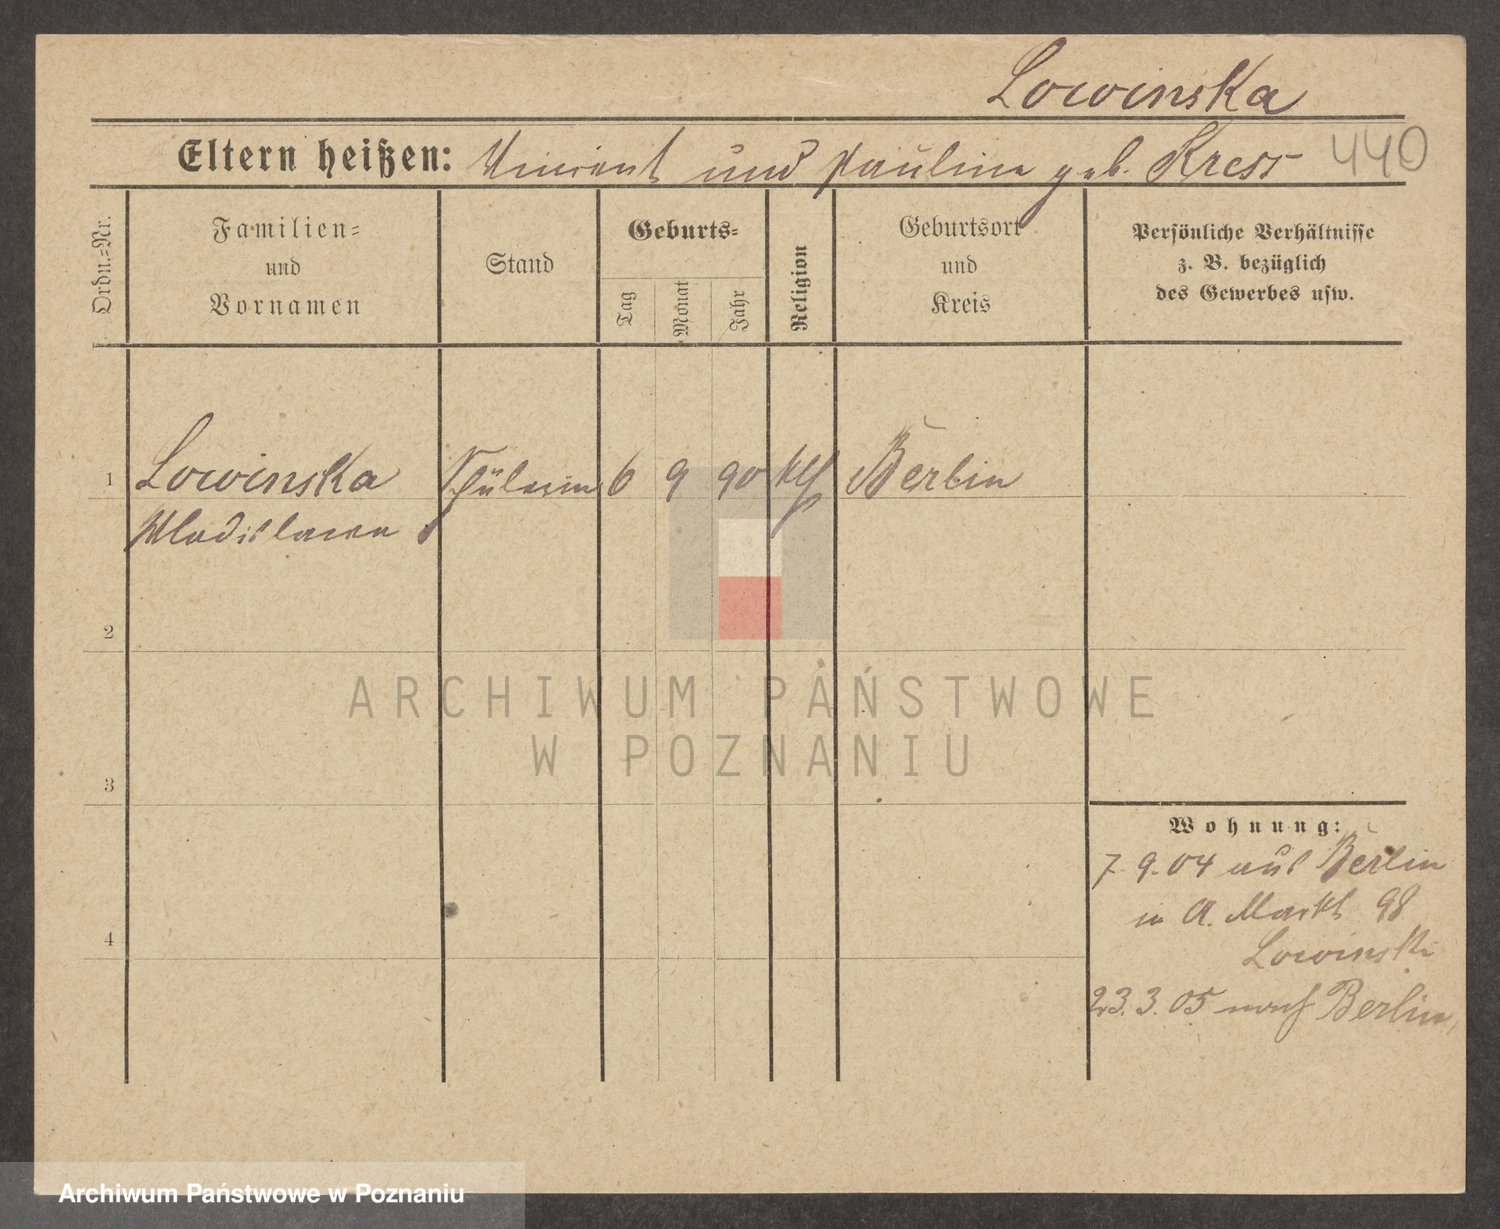 Lowinska
Eltern heißen: Vincent und Paulina geb. Kress 440
Ordn.=Nr.
Familien=
und
Vornamen
Stand
Geburts=
Tag
Monat
Jahr
Religion
Geburtsort
und
Kreis
Persönliche Verhältnisse
z. B. bezüglich
des Gewerbes usw.
1 Lowinska Schülerin 6 9 90 kth Berlin
Wladislawa
2
ARCHIWUM PAŃSTWOWE
W POZNANIU
3
Wohnung:
7.9.04 aus Berlin
in A. Markt 98
4
Lowinski
23.3.05 nach Berlin
Archiwum Państwowe w Poznaniu